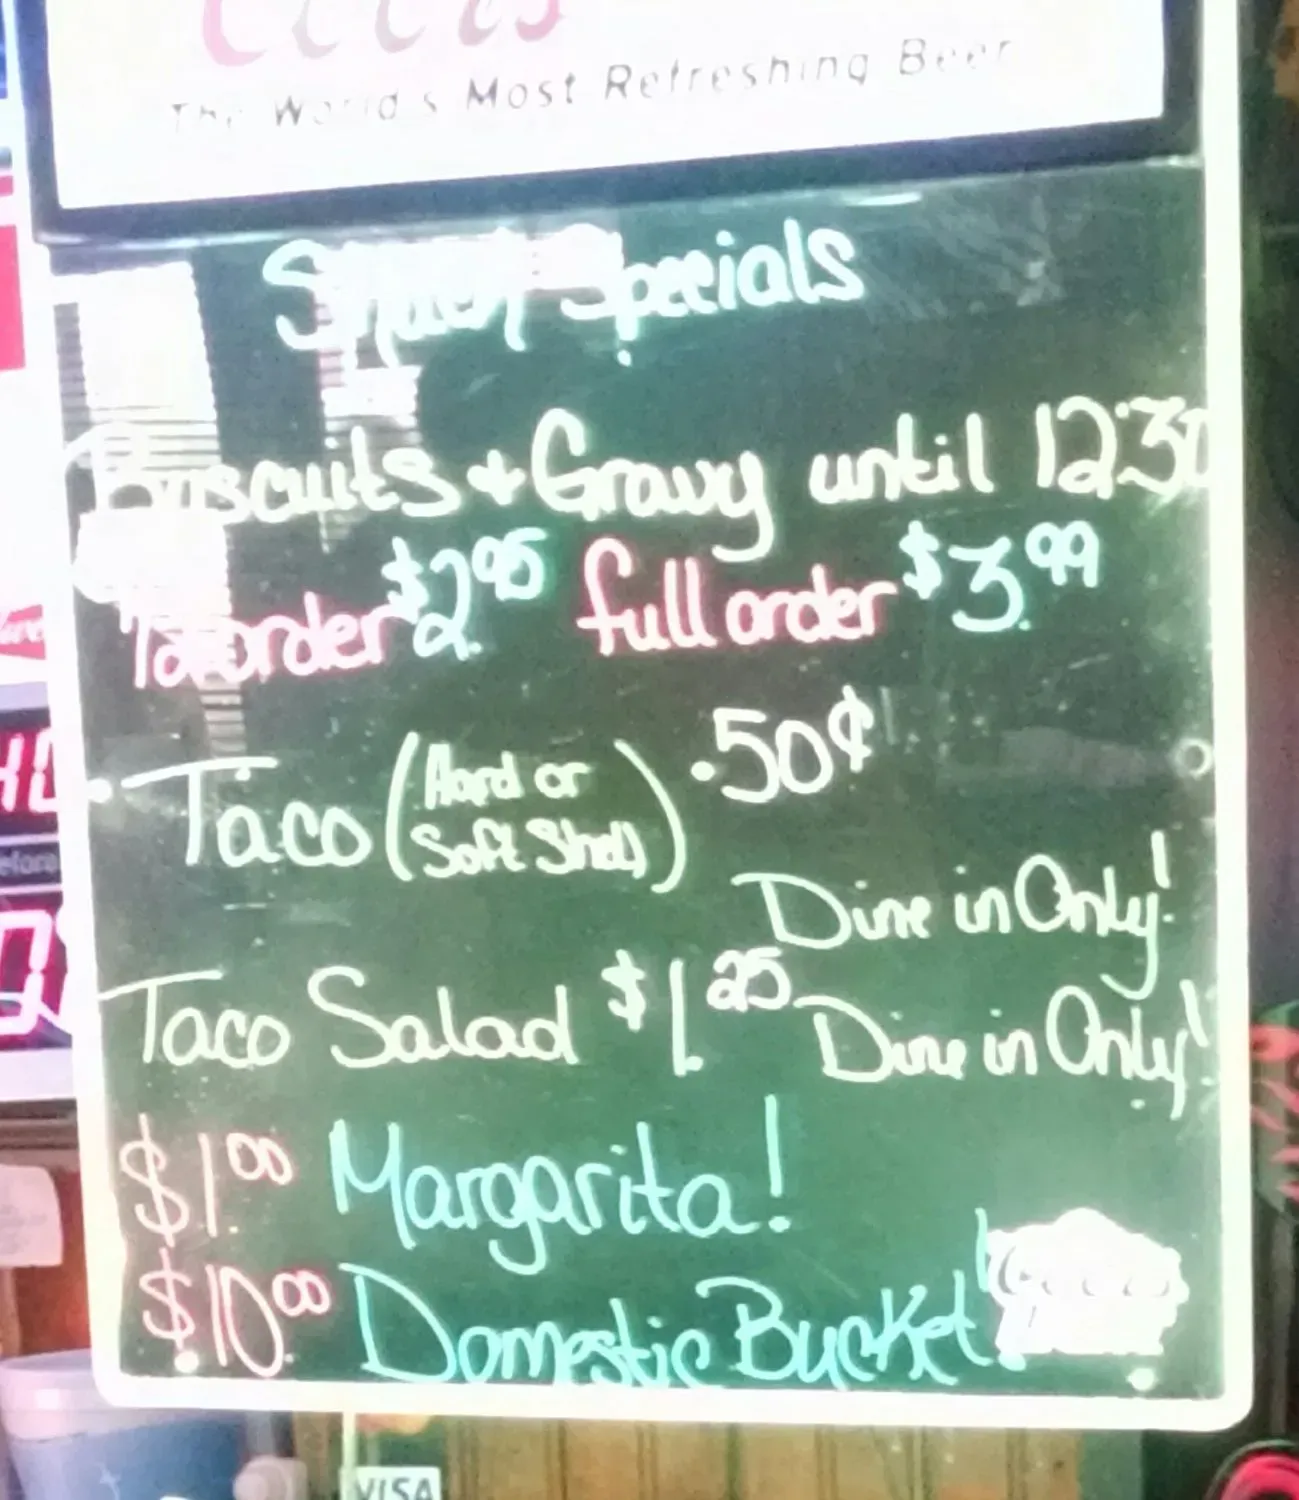 Coors
The World's Most Refreshing Beer
Specials
Biscuits + Gravy until 12:30
order $2.95 full order $3.99
Taco (Hard or Soft Shell) .50¢
Dine in Only!
Taco Salad $1.25 Dine in Only!
$1.00 Margarita!
$10.00 Domestic Bucket!
VISA